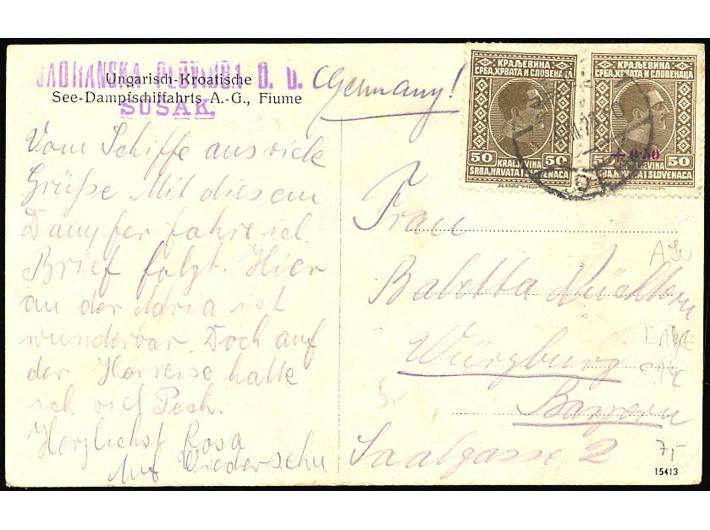 JADRANSKA PLOVIDBA D. D.
Ungarisch-Kroatische
See-Dampfschiffahrts A.-G., Fiume
SUŠAK.
(Germany!
Vom Schiffe aus viele
Grüße. Mit diesem
Dampfer fahre ich.
Brief folgt. Hier
an der Adria ist
wunderbar. Doch auf
der Herreise hatte
ich viel Pech.
Herzlichst Rosa
Auf Wiedersehn
КРАЉЕВИНА
СРБА, ХРВАТА И СЛОВЕНАЦА
50 KRALJEVINA 50
SRBA, HRVATA I SLOVENACA
КРАЉЕВИНА
СРБА, ХРВАТА И СЛОВЕНАЦА
+ 0·50
50 KRALJEVINA 50
SRBA, HRVATA I SLOVENACA
Frau
Babetta
Würzburg
Bayern
Saalgasse 2
7,-
15413